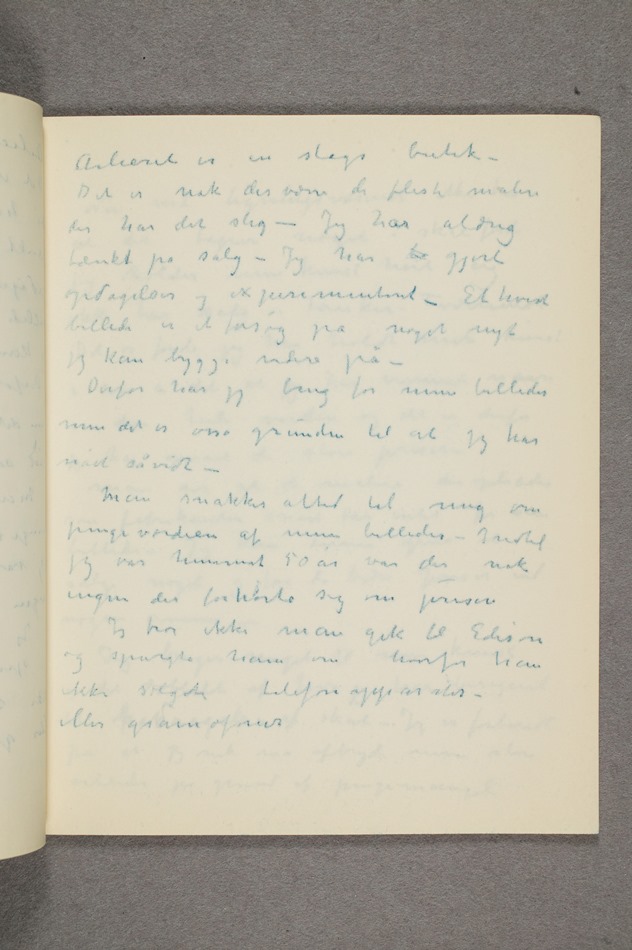 Atelieret er en slags butik –
Det er nok desværre de fleste malere
der har det slig – Jeg har aldrig
tænkt på salg – Jeg har gjort
opdagelser og experimenteret – Et hvert
billede er et forsøg på noget nyt
jeg kan bygge videre på –
Derfor har jeg brug for mine billeder
men det er osså grunden til at jeg har
nået såvidt –
Man snakker altid til mig om
pengeværdien af mine billeder – Indtil
jeg var henimot 50 år var der nok
ingen der forhørte sig om prisen
Jeg tror ikke man gik til Edison
og spurgte ham om hvorfor han
ikke solgte telefonapparater –
eller gramofoner